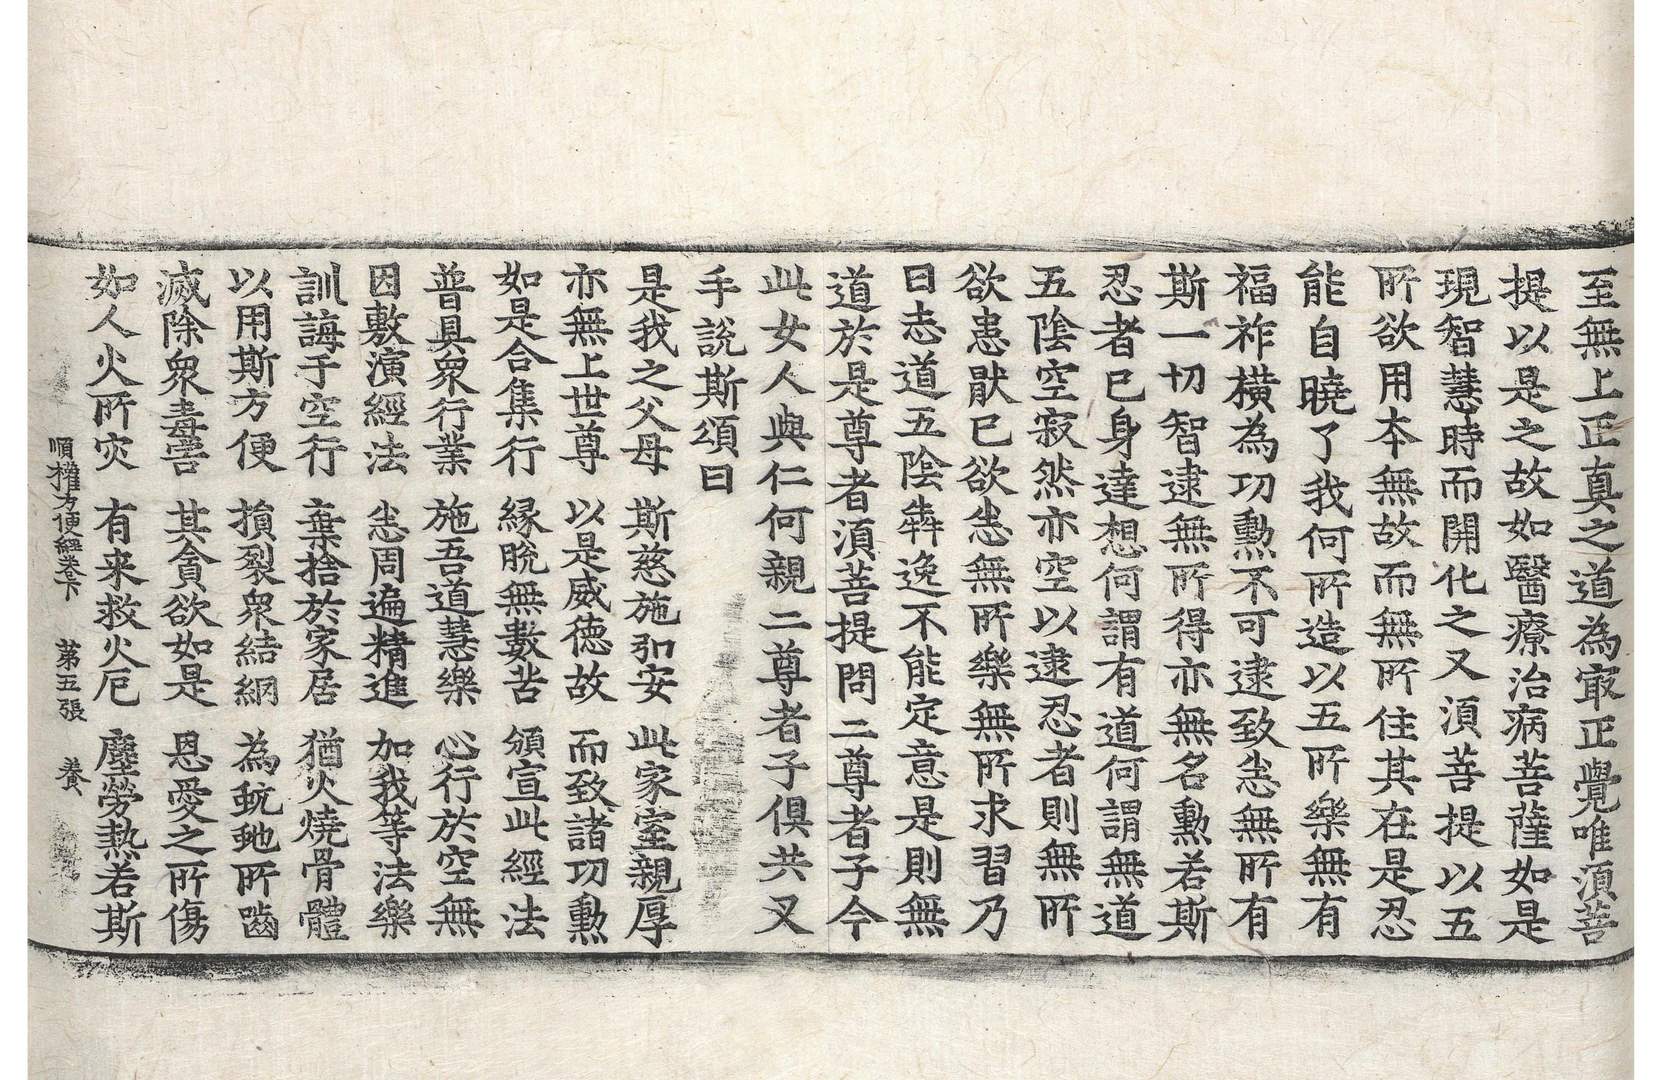 至無上正真之道為㝡正覺唯湏菩
提以是之故如醫療治病菩薩如是
現智慧時而開化之又湏菩提以五
所欲用本無故而無所住其在是忍
能自曉了我何所造以五所樂無有
福祚橫為功勲不可逮致恙無所有
斯一切智逮無所得亦無名勲若斯
忍者已身達想何謂有道何謂無道
五陰空寂然亦空以逮忍者則無所
欲恚猒已欲恙無所樂無所求習乃
曰志道五陰犇逸不能定意是則無
道於是尊者湏菩提問二尊者子今
此女人與仁何親二尊者子俱共叉
手說斯頌曰
是我之父母 斯慈施弘安 此家室親厚
亦無上世尊 以是威德故 而致諸功勲
如是合集行 緣脫無數苦 頒宣此經法
普具衆行業 施吾道慧樂 心行於空無
因敷演經法 恙周遍精進 加我等法樂
訓誨于空行 棄捨於家居 猶火燒骨體
以用斯方便 損裂衆結網 為蚖虵所齧
滅除衆毒害 其貪欲如是 恩愛之所傷
如人火所灾 有来救火厄 塵勞熱若斯
順權方便經卷下 第五張 養